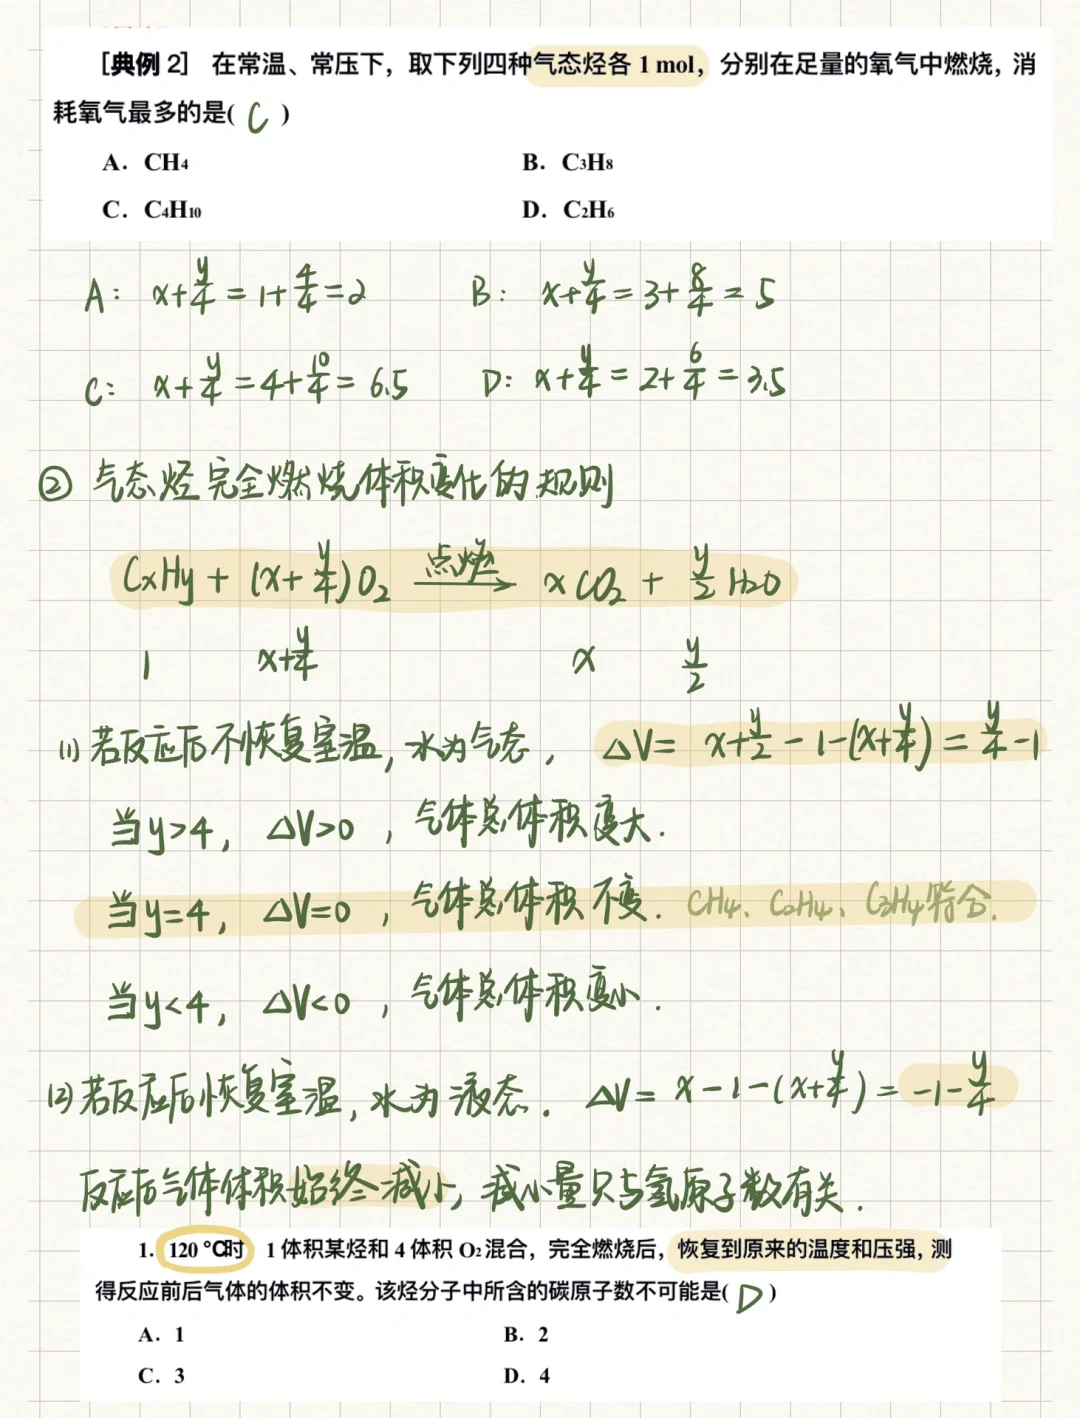 [典例 2] 在常温、常压下，取下列四种气态烃各 1 mol，分别在足量的氧气中燃烧，消
耗氧气最多的是( C )
A．CH₄ B．C₃H₈
C．C₄H₁₀ D．C₂H₆
A: x+y/4=1+4/4=2 B: x+y/4=3+8/4=5
C: x+y/4=4+10/4=6.5 D: x+y/4=2+6/4=3.5
② 气态烃完全燃烧体积变化的规则
CxHy + (x+y/4)O₂ —点燃→ xCO₂ + y/2 H₂O
1 x+y/4 x y/2
(1) 若反应后不恢复室温, 水为气态, ΔV= x+y/2-1-(x+y/4)=y/4-1
当y>4, ΔV>0, 气体总体积变大.
当y=4, ΔV=0, 气体总体积不变. CH₄、C₂H₄、C₃H₄符合.
当y<4, ΔV<0, 气体总体积变小.
(2) 若反应后恢复室温, 水为液态. ΔV= x-1-(x+y/4)=-1-y/4
反应后气体体积始终减小, 减小量只与氢原子数有关.
1. 120 ℃时 1 体积某烃和 4 体积 O₂混合，完全燃烧后，恢复到原来的温度和压强，测
得反应前后气体的体积不变。该烃分子中所含的碳原子数不可能是( D )
A．1 B．2
C．3 D．4